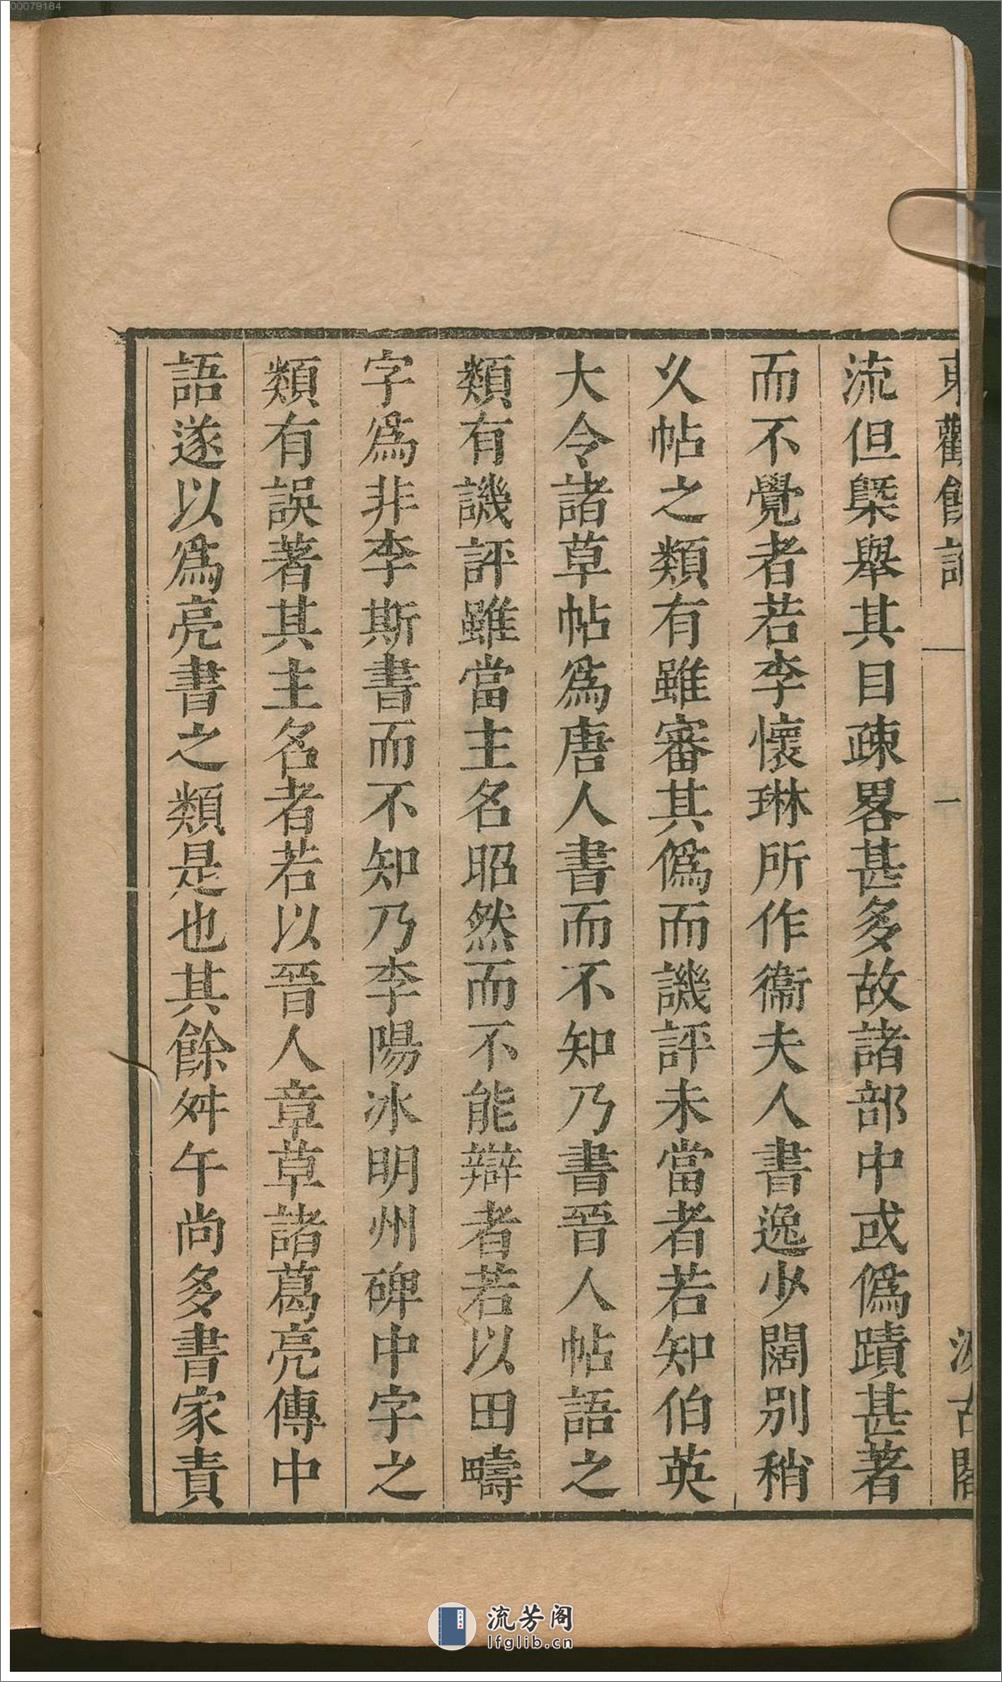 00079184
東觀餘論 一 汲古閣
流但槩舉其目疎畧甚多故諸部中或僞蹟甚著
而不覺者若李懷琳所作衞夫人書逸少闊别稍
乆帖之類有雖審其僞而譏評未當者若知伯英
大令諸草帖爲唐人書而不知乃書晉人帖語之
類有譏評雖當主名昭然而不能辯者若以田疇
字爲非李斯書而不知乃李陽冰明州碑中字之
類有誤著其主名者若以晉人章草諸葛亮傳中
語遂以爲亮書之類是也其餘舛午尚多書家責
流芳阁
lfglib.cn